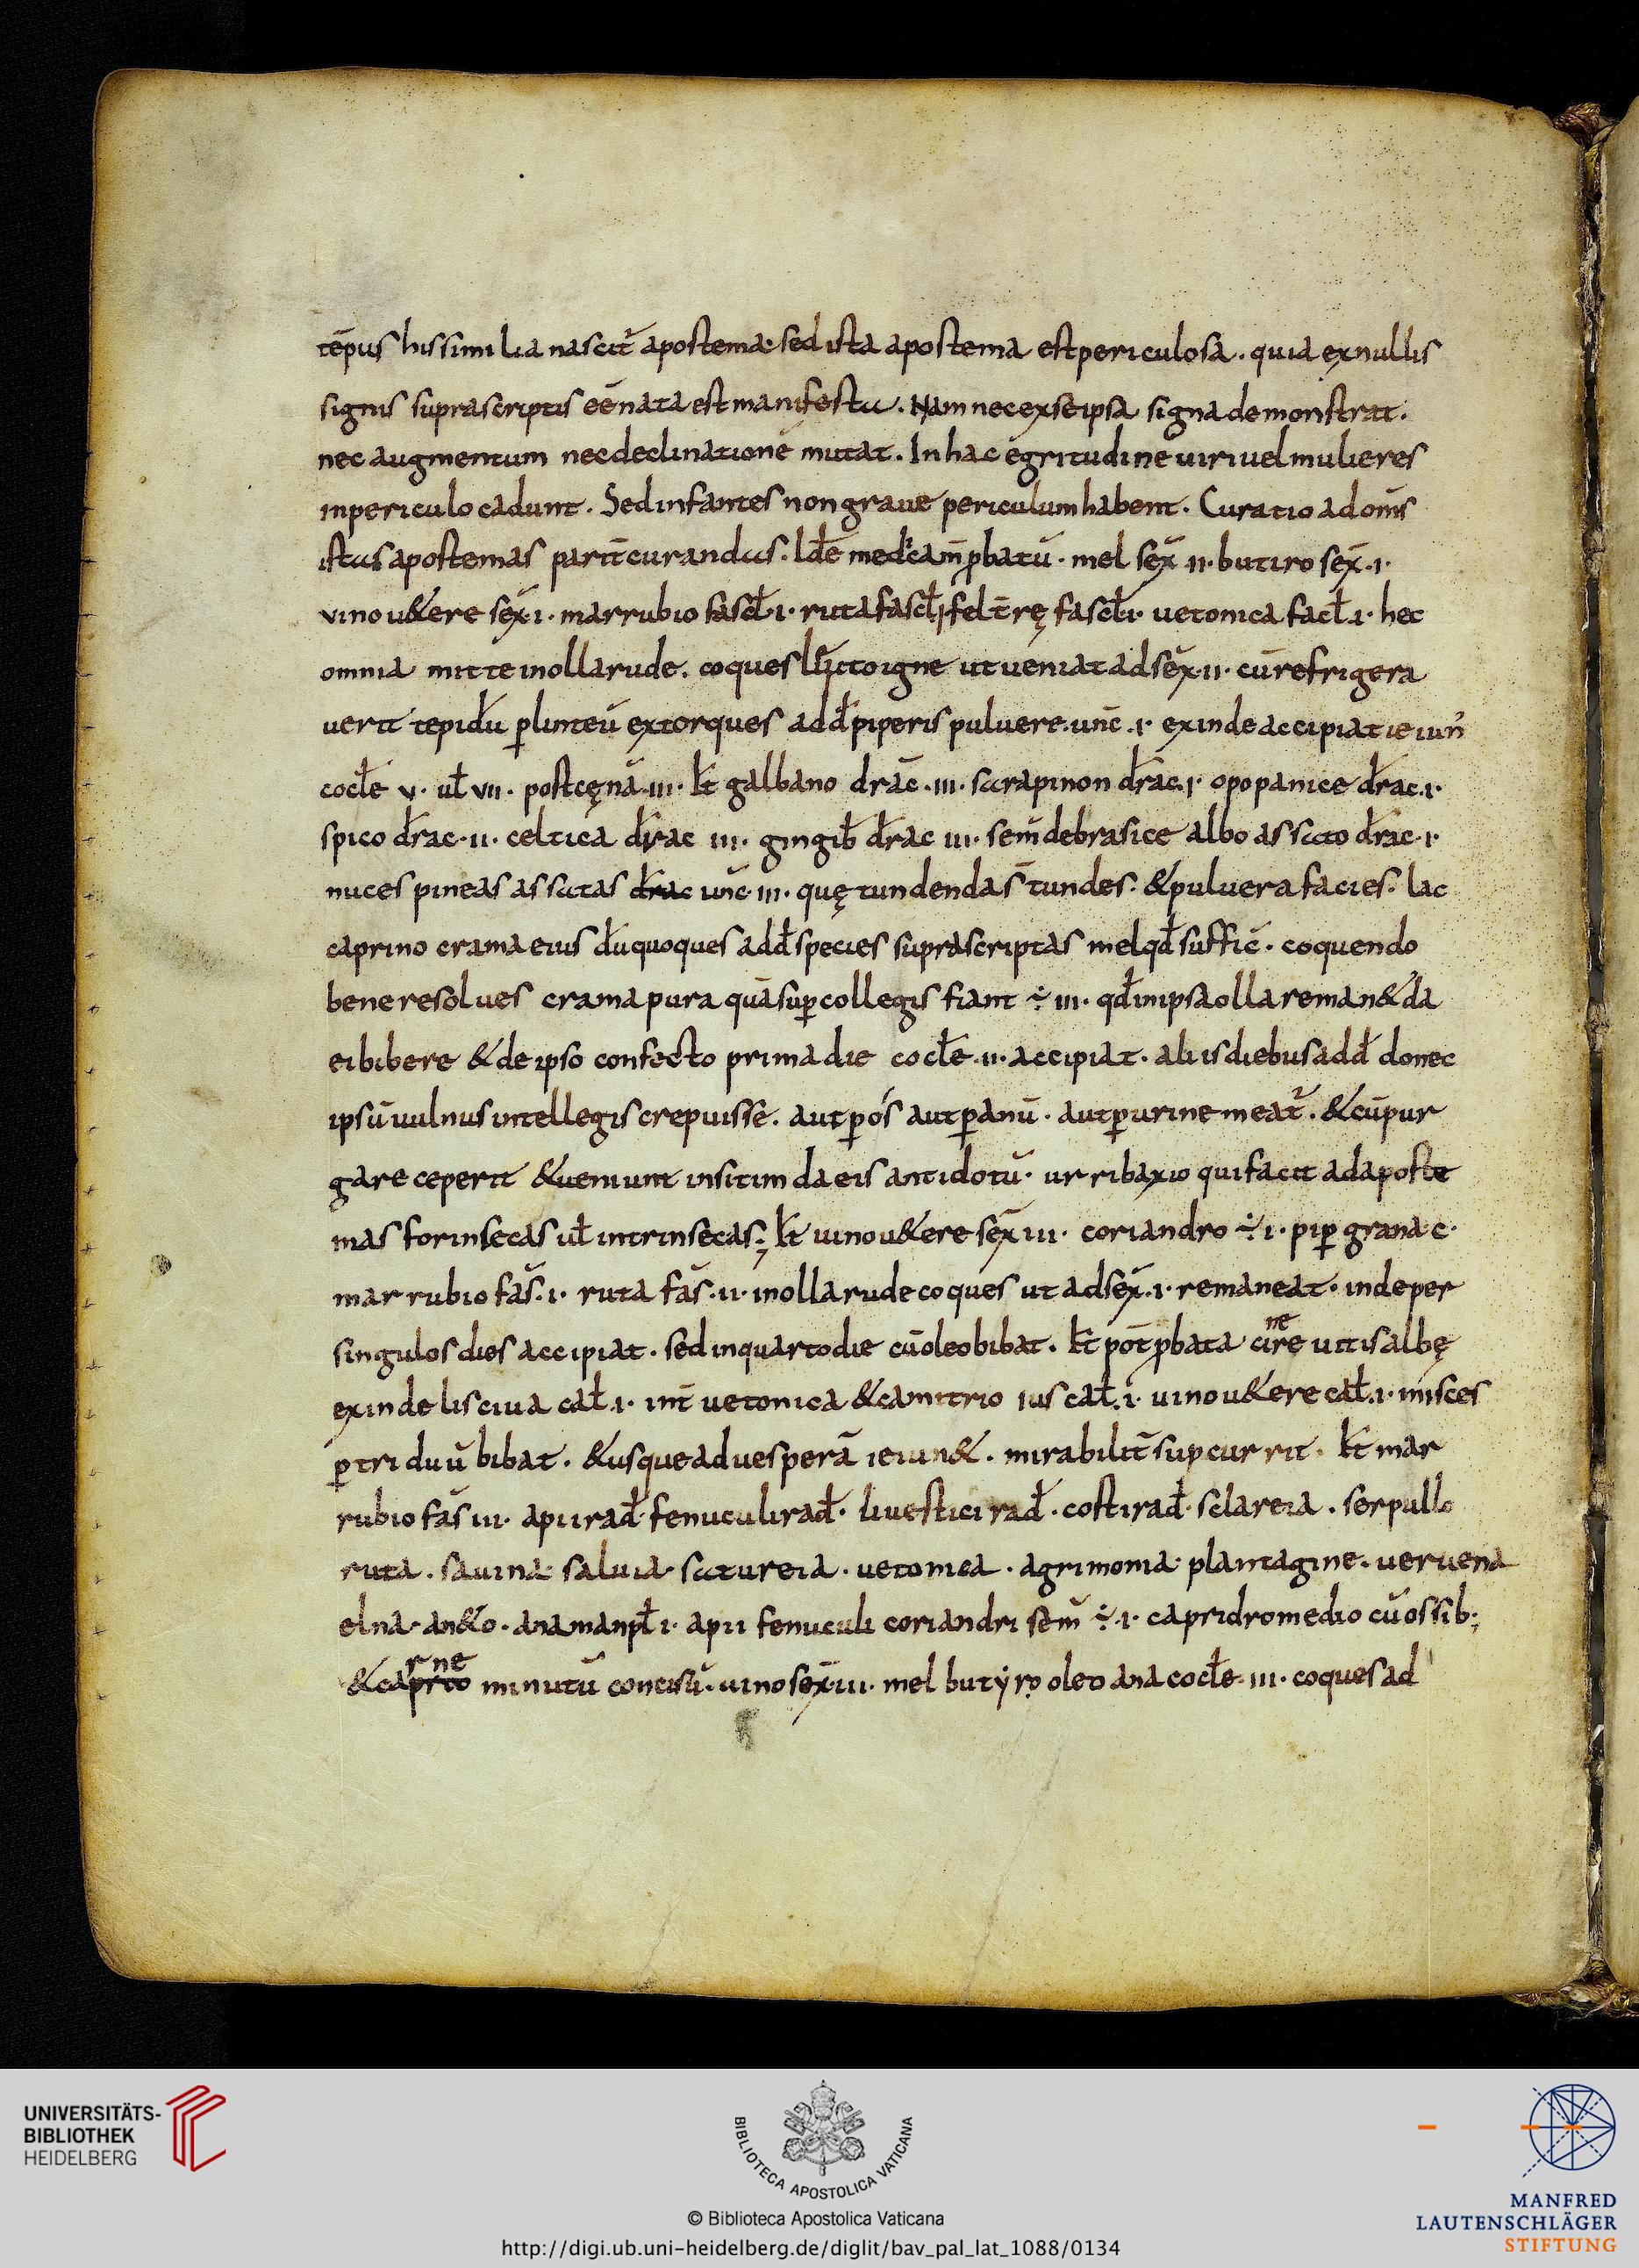 tēpus his similia nascit᷑ apostema· sed ista apostema est periculosa. quia ex nullis
signis suprascriptis eē nata est manifesta. Nam nec ex se ipsa signa demonstrat.
nec augmentum nec declinationē mutat. In hac egritudine uiri uel mulieres
in periculo cadunt. Sed infantes non graue periculum habent. Curatio ad om̄s
istas apostemas parit̄ curandas. medicam̄ ꝓbatū· mel sex̄ ii· butiro sex̄·i·
vino u&ere sex̄·i· marrubio fascł·i· ruta fascł i felt̄rę fascł·i· uetonica facł·i· hec
omnia mitte in olla rude. coques igne ut ueniat ad sex̄·ii· cū refrigera
uerit tepidū ꝑ linteū extorques add̄ piperis puluere·unc̄·i· exinde accipiat ieiun᷑
cocłe v· uł vii· post cęnā·iii· galbano drāc·iii· sarapinon drāc·i· opopanice drac·i·
spico drac·ii· celtica drac iii· gingib̄ drac iii· sem̄ de brasice albo assato drac·i·
nuces pineas assatas drac unc̄·iii· quę tundenda s̄ tundes· & puluera facies· lac
caprino crama eius dū quoques add̄ species suprascriptas mel qd̄ suffic̄· coquendo
bene resolues crama pura quā suꝑ collegis fiant ÷ iii· qd̄ in ipsa olla reman& da
ei bibere & de ipso confecto prima die cocłe·ii· accipiat· aliis diebus add̄ donec
ipsū uulnus intellegis crepuisse. aut ꝑ os aut ꝑ anū· aut ꝑ urine meat᷑. & cū pur
gare ceperit & ueniunt in sitim da eis antidotū· ur ribaxio qui facit ad aposte
mas forinsecas uł intrinsecas; uino u&ere sex̄ iii· coriandro ÷ i· piꝑ grana c·
marrubio fas̄·i· ruta fas̄·ii· in olla rude coques ut ad sex̄·i· remaneat· inde per
singulos dies accipiat· sed in quarto die cū oleo bibat. pot̄ ꝓbata cinere uitis albę
exinde lisciua cał·i· int̄ uetonica & camitrio ius cał·i· uino u&ere cał·i· misces
ꝑ triduū bibat. & usque ad uesperā ieiun&. mirabilit̄ supcurrit. mar
rubio fas̄ iii· apii rad̄· fenuculi rad̄· liuestici rad̄· costi rad̄· sclareia. serpullo
ruta. sauina· saluia· satureia· uetonica· agrimonia· plantagine· veruena
elna· an&o· ana manpł i· apii fenuculi coriandri sem̄ ÷·i· capri dromedio cū ossib;
& carne minutū concisū· uino sex̄·iii· mel butyro oleo ana cocłe·iii· coques ad
UNIVERSITÄTS-
BIBLIOTHEK
HEIDELBERG
BIBLIOTECA APOSTOLICA VATICANA
© Biblioteca Apostolica Vaticana
http://digi.ub.uni-heidelberg.de/diglit/bav_pal_lat_1088/0134
MANFRED
LAUTENSCHLÄGER
STIFTUNG